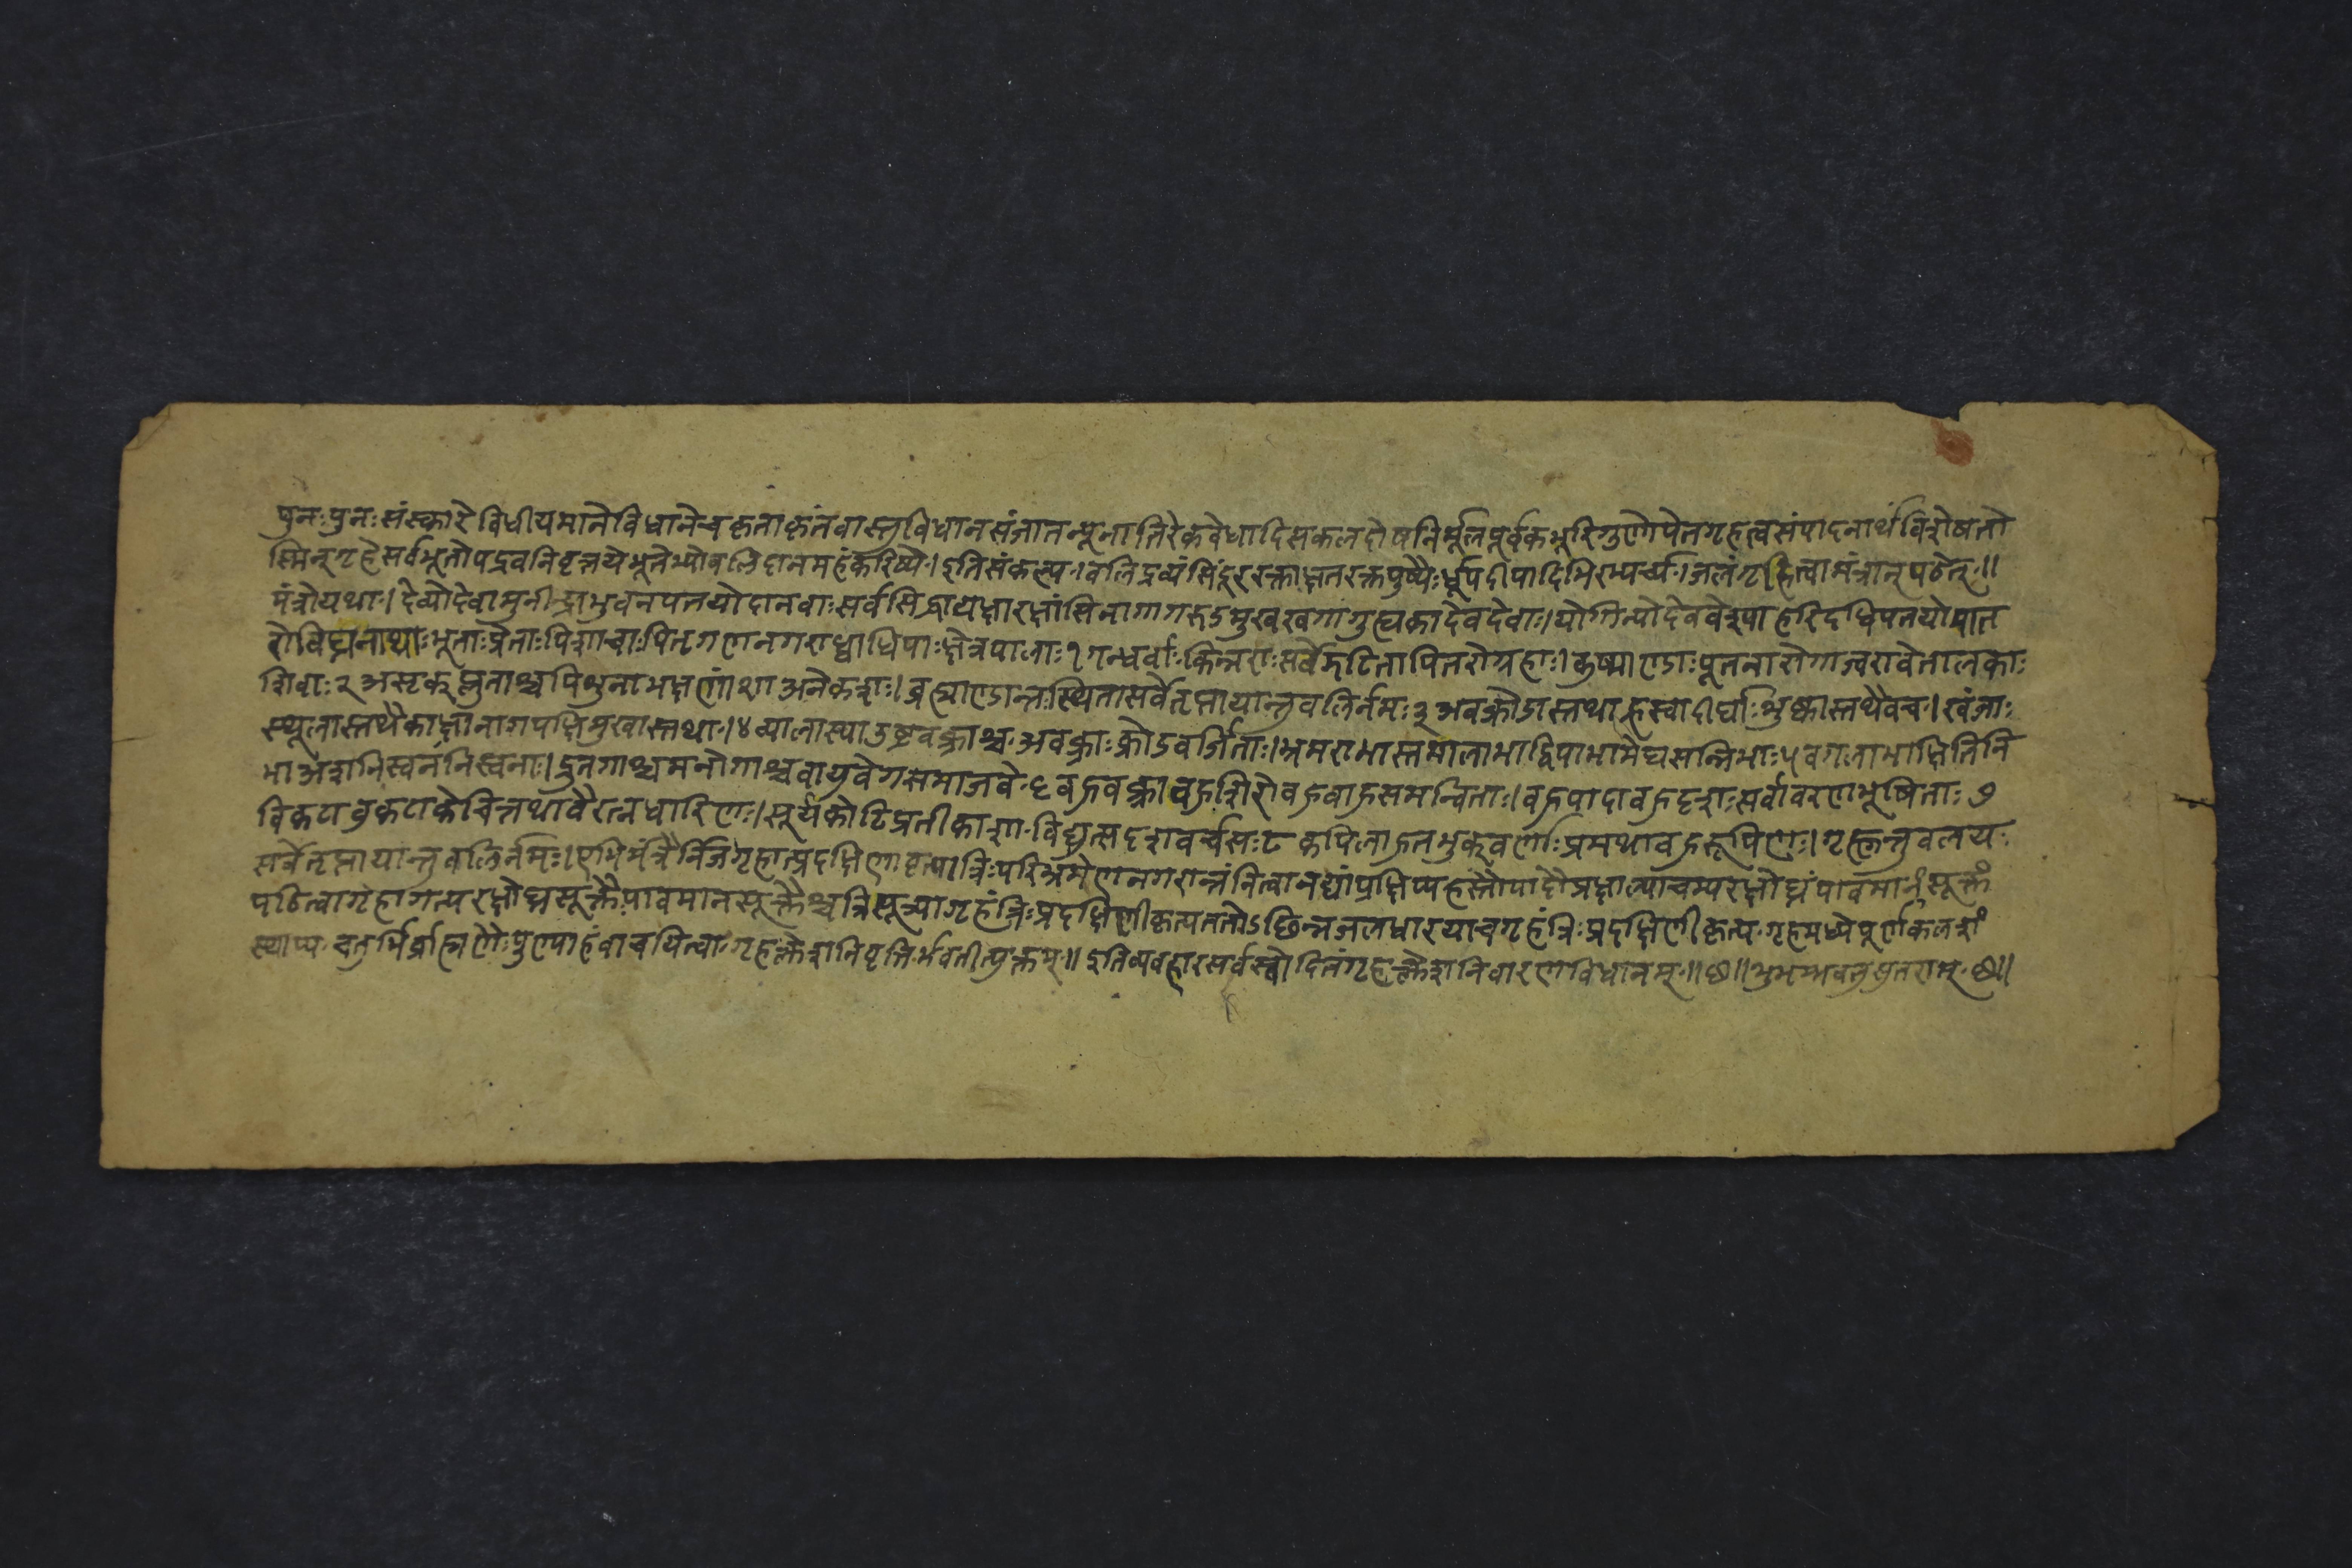 पुनःपुनःसंस्कारे विधीयमानेविधानेचकृताकृतवास्तुविधानसंजातन्यूनातिरेकवेधादिसकलदोषनिर्मूलपूर्वकभूरिगुणोपेतगृहत्वसंपादनार्थंविशेषतो
स्मिन्गृहेसर्वभूतोपद्रवनिवृत्तयेभूतेभ्योवलिदानमहंकरिष्ये।इतिसंकल्प्य।वलिद्रव्यंसिंदूररक्ताक्षतरक्तपुष्पैःर्धूपदीपादिभिरभ्यर्च्य।जलंगृहित्वामंत्रान्पठेत्॥
मंत्रोयथा।देव्योदेवामुनीन्द्राभुवनपतयोदानवाःसर्वसिद्धायक्षारक्षांसिनागागरुडमुखखगागुह्यकादेवदेवाः।योगिन्योदेववेश्याहरिदधिपतयोमात
रोविघ्ननाथाःभूताःप्रेताःपिशाचाःपितृगणनगराध्वाधिपाःक्षेत्रपालाः१गन्धर्वाःकिन्नराःसर्वेजटिलापितरोग्रहाः।कुष्माण्डाःपूतनारोगाज्वरावेतालकाः
शिवाः२असृक्प्लुताश्चपिशुनाभक्षमांशाअनेकशः।व्रह्माण्डान्तःस्थितासर्वेतृप्तायान्तुवलिर्नमः३अवक्रौडास्तथाह्रस्वादीर्घाःशुष्कास्तथैवच।खंजाः
स्थूलास्तथैकाक्षानागपक्षिमुखास्तथा।४व्यालास्याउष्ट्रवक्त्राश्चअवक्त्राःक्रोडवर्जिताः।भ्रमराभास्तमालाभाद्विपाभामेघसन्निभाः५वगलाभाक्षितिनि
भाअशनिस्वननिस्वनाः।द्रुतगाश्चमनोगाश्चवायुवेगसमाजवे६वहुवक्त्रावहुशिरोवहुवाहुसमन्विताः।वहुपादावहुदृशःसर्वावरणभूषिताः७
विकटावुकटाकेचित्तथावैरत्नधारिणः।सूर्यकोटिप्रतीकाशाविद्युत्सदृशवर्चसः८कपिलाहुतभुक्वर्णाःप्रमथावहुरूपिणः।गृह्णन्तुवलयः
सर्वेतृप्तायान्तुवलिर्नमः।एभिर्मंत्रैर्निजगृहात्प्रदक्षिणावृत्यात्रिःपरिभ्रमेणनगरान्तंनित्वानद्यांप्रक्षिप्यहस्तौपादौप्रक्षाल्याचम्यरक्षोघ्नंपावमानंसूक्तं
पठित्वागृहागत्यरक्षोघ्नसूक्तैपावमानसूक्तैश्चत्रिसूत्र्यागृहंत्रिःप्रदक्षिणीकृत्यततोऽछिन्नजलधारयाचगृहंत्रिःप्रदक्षिणीकृत्यगृहमध्येपूर्णकलशं
स्थाप्यचतुर्भिर्व्राह्मणैःपुण्याहंवाचयित्वागृहक्लेशनिवृत्तिर्भवतीत्युक्तम्॥इतिव्यवहारसर्वस्वोदितंगृहक्लेशनिवारणविधानम्॥छ॥शुभम्भवतुसुतराम्छ॥